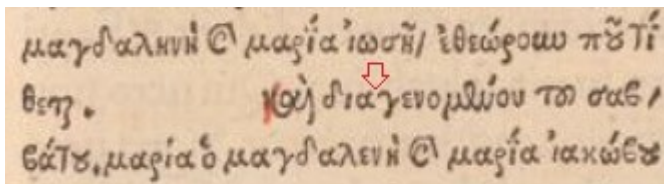 μαγδαληνὴ καὶ μαρΐα ἰωσῆ/ ἐθεώρουν ποῦ τί
θεται. καὶ διαγενομένου τοῦ σαβ/
βάτου. μαρία ὁ μαγδαλενὴ καὶ μαρΐα ἰακώβου